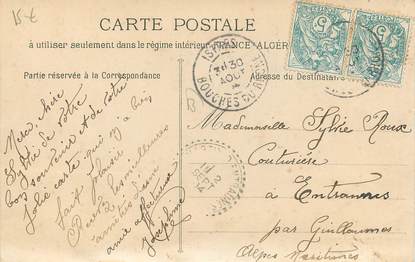 15 €
CARTE POSTALE
à utiliser seulement dans le régime intérieur, FRANCE-ALGÉR
Partie réservée à la Correspondance
Adresse du Destinataire
ISTRES
30
AOUT
BOUCHES DU RHONE
5
5
Merci chère
Sylvie de votre
bon souvenir et de votre
Jolie carte qui m'a bien
fait plaisir
Reçois les meilleures
amitiés de son
amie affectueuse
Joséphine
Mademoiselle Sylvie Roux
Couturière
à Entraunes
par Guillaumes
Alpes Maritimes